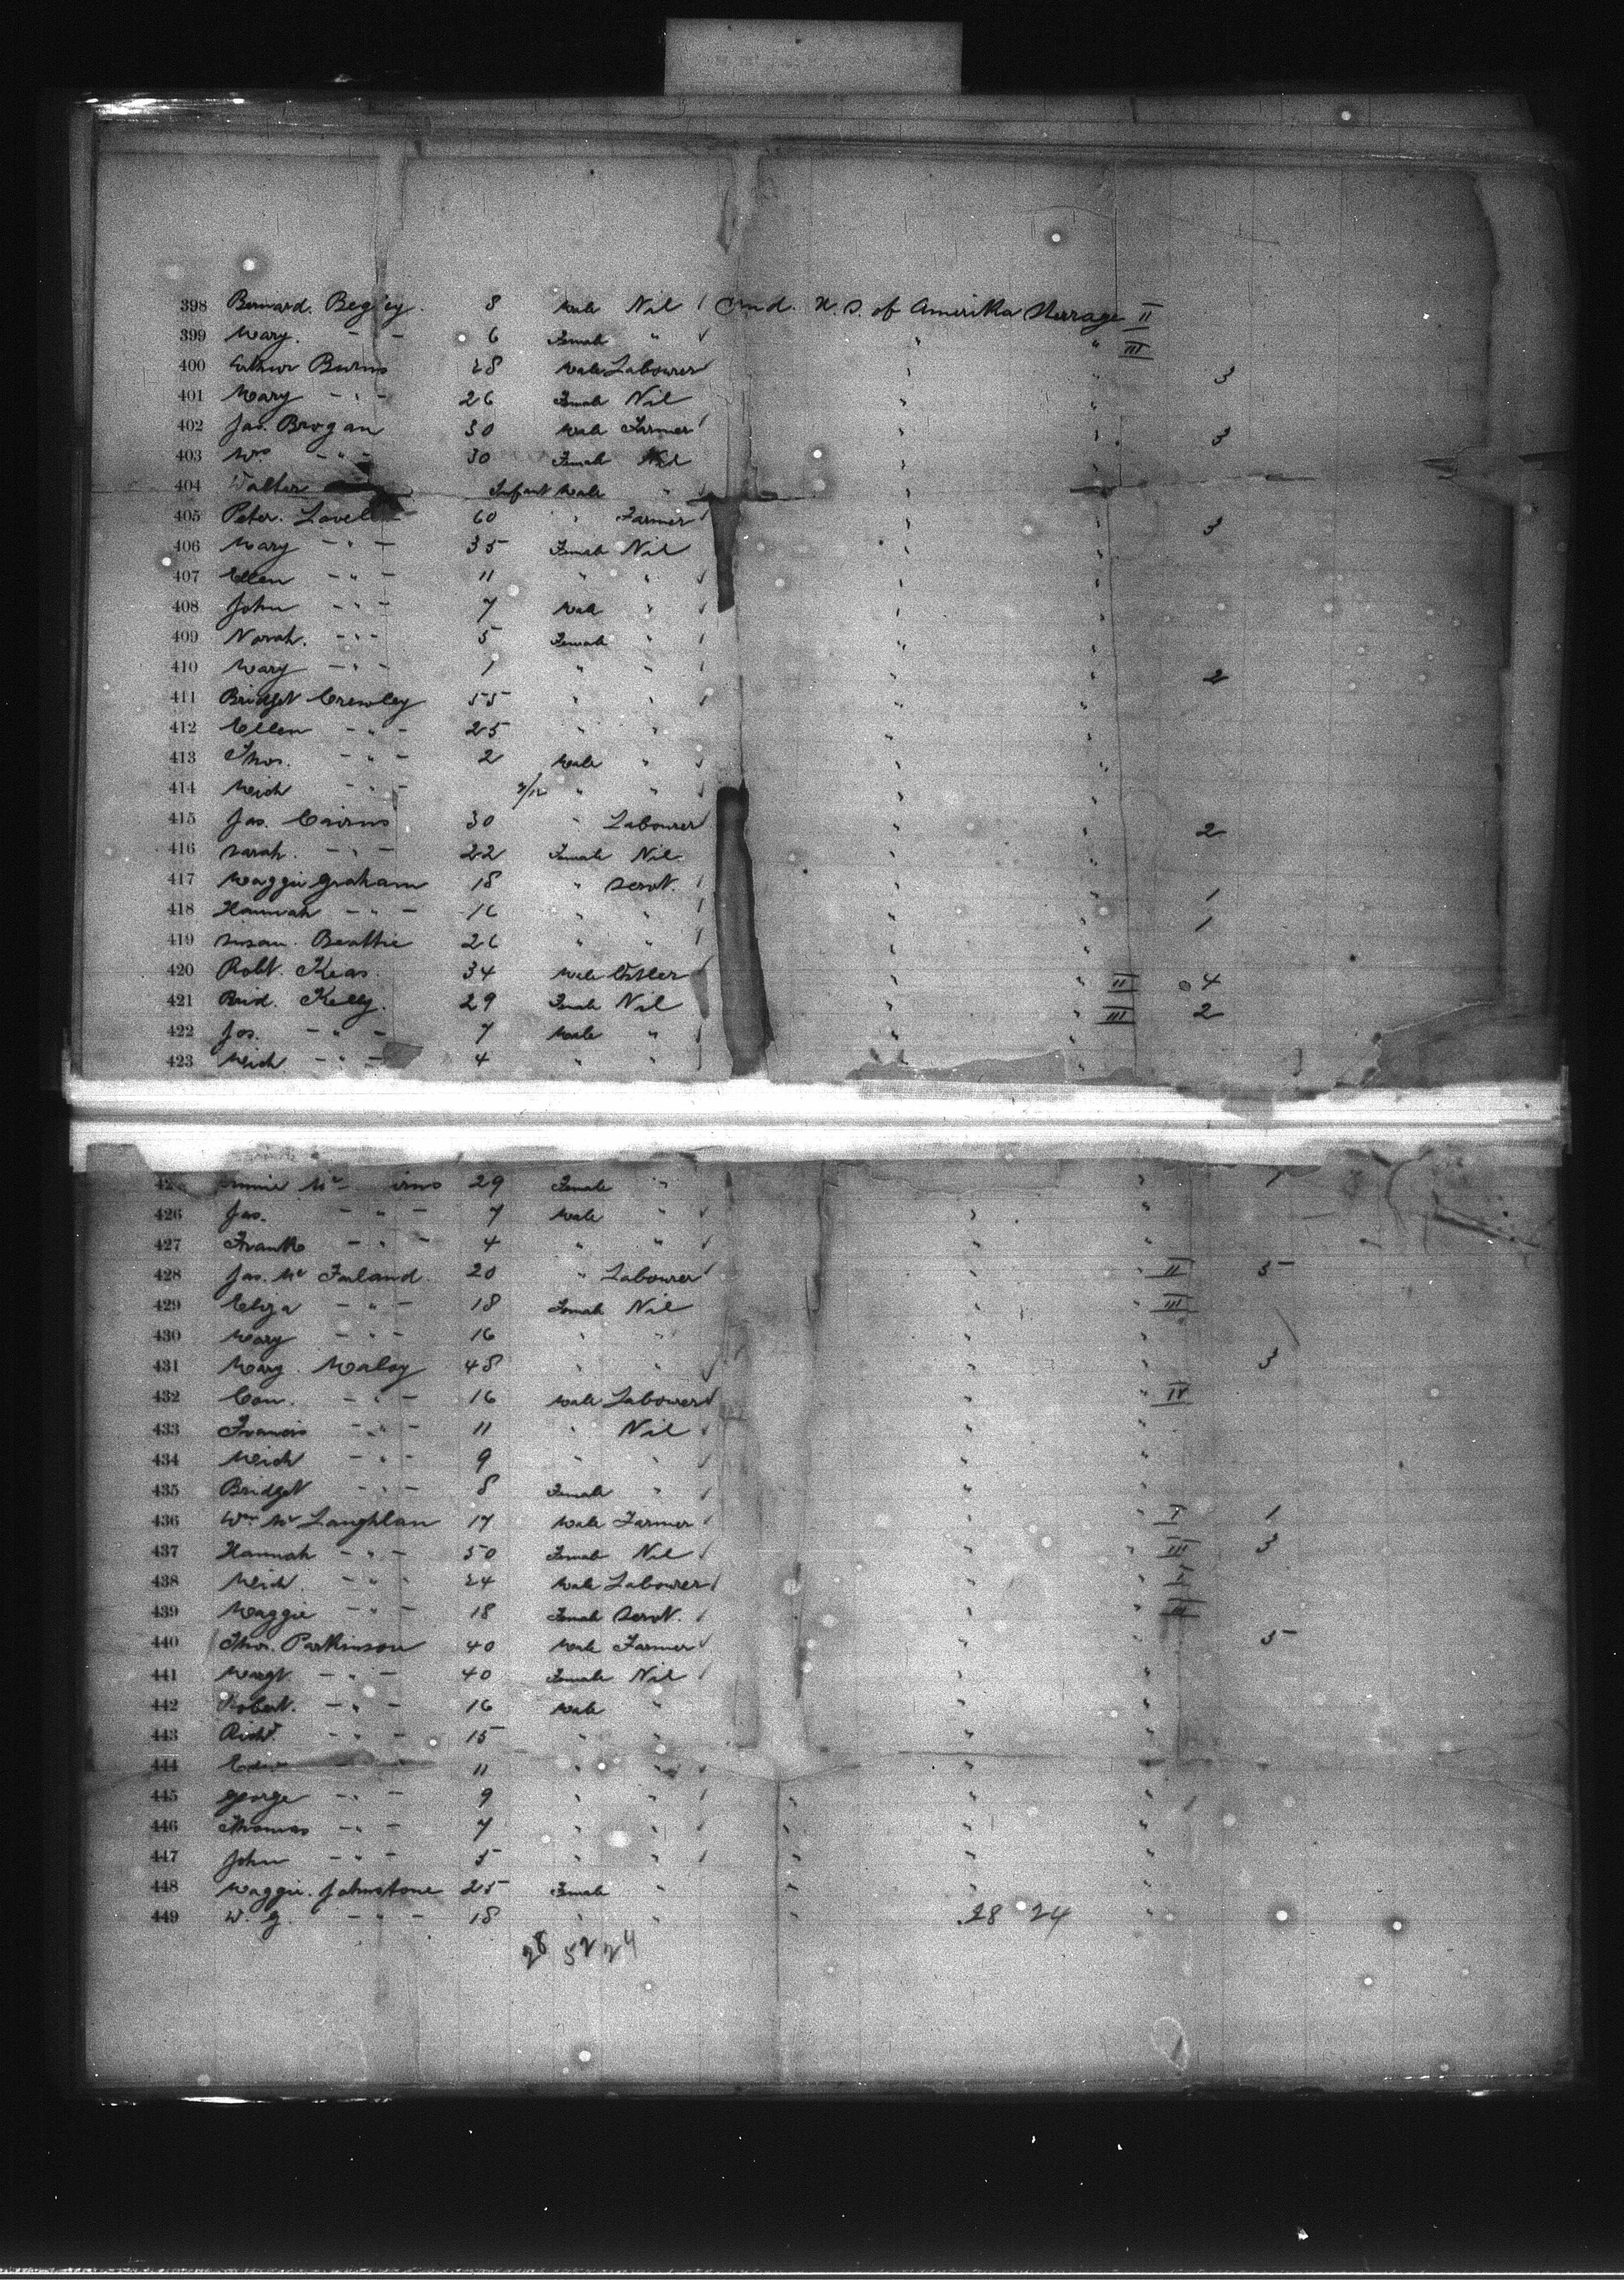 398 Bernard. Begley. 8 Male Nil / Irnd. U. S. of Amerika Sterrage II
399 Mary. - - 6 Female " " " III
400 Arthur Burns 28 Male Labourer " " 3
401 Mary - " - 26 Female Nil " "
402 Jas. Brogan 30 Male Farmer " " 3
403 Mrs - " - 30 Female Nil " "
404 Walter Infant Male " " "
405 Peter. Lavel 60 " Farmer " " 3
406 Mary - " - 35 Female Nil " "
407 Ellen - " - 11 " " " "
408 John - " - 7 Male " " "
409 Norah. - " - 5 Female " " "
410 Mary - " - 1 " " " " 2
411 Bridget Crewley 55 " " " "
412 Ellen - " - 25 " " " "
413 Thos. - " - 2 Male " " "
414 Mich - " - /12 " " " "
415 Jas. Cairns 30 " Labourer " " 2
416 Sarah. - " - 22 Female Nil " "
417 Maggie Graham 18 " Servt. " " 1
418 Hannah - " - 16 " " " " 1
419 Susan. Beattie 26 " " " "
420 Robt. Keas. 34 Male Ostler " " II 4
421 Brid. Kelly. 29 Female Nil " " III 2
422 Jos. - " - 7 Male " " "
423 Mich - " - 4 " " "
29 Female " " 1
426 Jas. - " - 7 Male " " "
427 Frank - " - 4 " " " "
428 Jas. Mc Farland. 20 " Labourer " " II 5
429 Eliza - " - 18 Female Nil " " III
430 Mary - " - 16 " " " "
431 Mary. Maloy 48 " " " " 3
432 Con. - " - 16 Male Labourer " " IV
433 Francis - " - 11 " Nil " "
434 Mich - " - 9 " " " "
435 Bridget - " - 8 Female " " "
436 Wm Mc Laughlan 17 Male Farmer " " I 1
437 Hannah - " - 50 Female Nil " " III 3
438 Mich. - " - 24 Male Labourer " " I
439 Maggie - " - 18 Female Servt. " " III
440 Thos. Parkinson 40 Male Farmer " 5
441 Margt. - " - 40 Female Nil " "
442 Robert. - " - 16 Male " " "
443 Richd. - " - 15 " " " "
444 11 " " " "
445 George - " - 9 " " " "
446 Thomas - " - 7 " " " "
447 John - " - 5 " " " "
448 Maggie. Johnstone 25 Female " " "
449 W. G. - " - 18 " " " 28 24 "
28 52 24